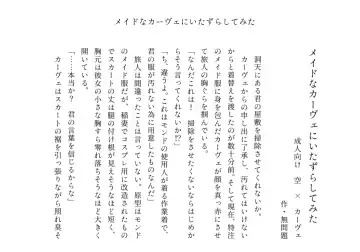 メイドなカーヴェにいたずらしてみた
メイドなカーヴェにいたずらしてみた
成人向け 空 × カーヴェ
作・無問題
洞天にある君の屋敷を掃除させてくれないか。
カーヴェからの申し出に了承し、汚れてはいけない
からと着替えを渡したのが数十分前。そして現在、特注
のメイド服に身を包んだカーヴェが顔を真っ赤にさせ
て旅人の胸ぐらを掴んでいる。
「なんだこれは！ 掃除をさせたくないならはじめか
らそう言ってくれないか!?」
「ち、違うよ。これはモンドの使用人が着る作業着で、
君の服が汚れない為に用意したものなんだ」
旅人は間違ったことは言っていない。原型はモンド
のメイド服だが、稲妻でコスプレ用に改造されたもの
でスカートの丈は腿の付け根が見えそうなほど短く、
胸元は彼女の小さな胸すら零れ落ちそうなほど大きく
開いている。
「……本当か？ 君の言葉を信じるからな」
カーヴェはスカートの裾を引っ張りながら照れ臭そ